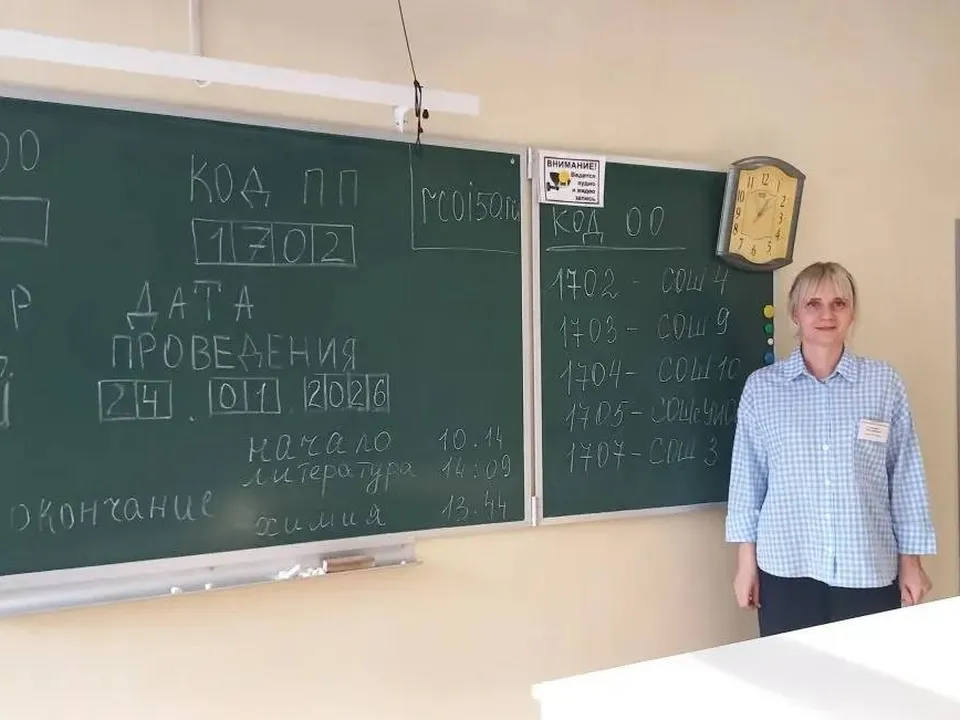 ОО
Р
КОД ПП
1702
ДАТА
ПРОВЕДЕНИЯ
24.01.2026
начало 10.14
литература 14:09
окончание
химия 13.44
rcoi50.ru
ВНИМАНИЕ!
Ведется
аудио
и видео
запись
КОД ОО
1702 - СОШ 4
1703 - СОШ 9
1704 - СОШ 10
1705 - СОШ
1707 - СОШ 3
12
1
2
3
4
5
6
7
8
9
10
11